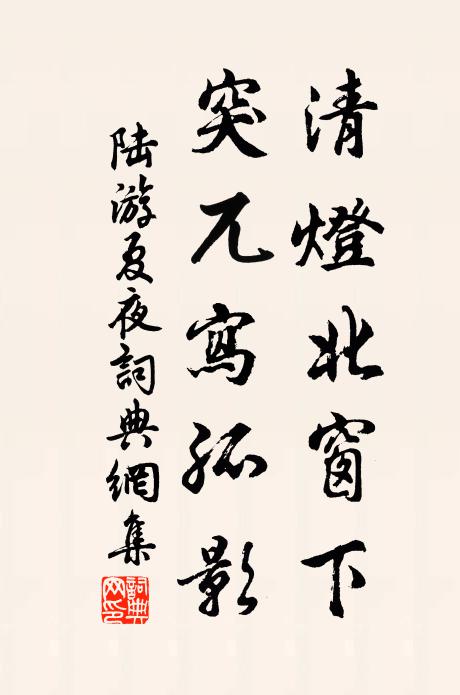 清燈北窗下
突兀寫孤影
陆游夏夜詞典網集
詞典网印